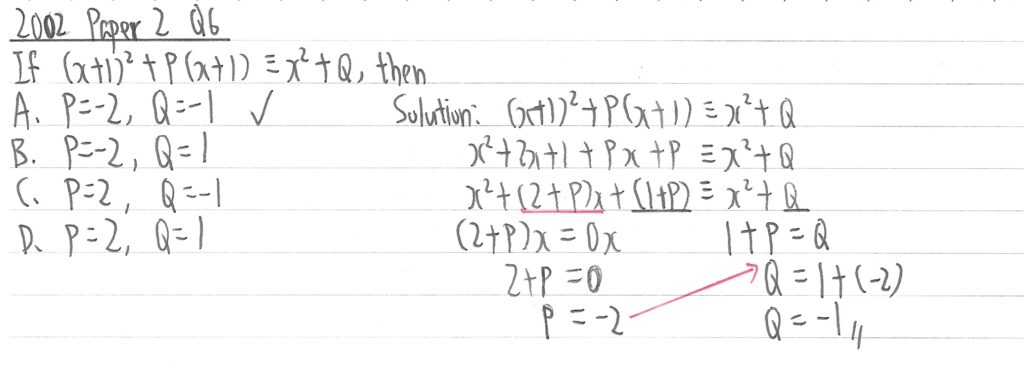 2002 Paper 2 Q6
If (x+1)² + P(x+1) ≡ x² + Q, then
A. P=-2, Q=-1 ✓
B. P=-2, Q=1
C. P=2, Q=-1
D. P=2, Q=1
Solution: (x+1)² + P(x+1) ≡ x² + Q
x² + 2x + 1 + Px + P ≡ x² + Q
x² + (2+P)x + (1+P) ≡ x² + Q
(2+P)x = 0x
1+P = Q
2+P = 0
Q = 1+(-2)
P = -2
Q = -1 //